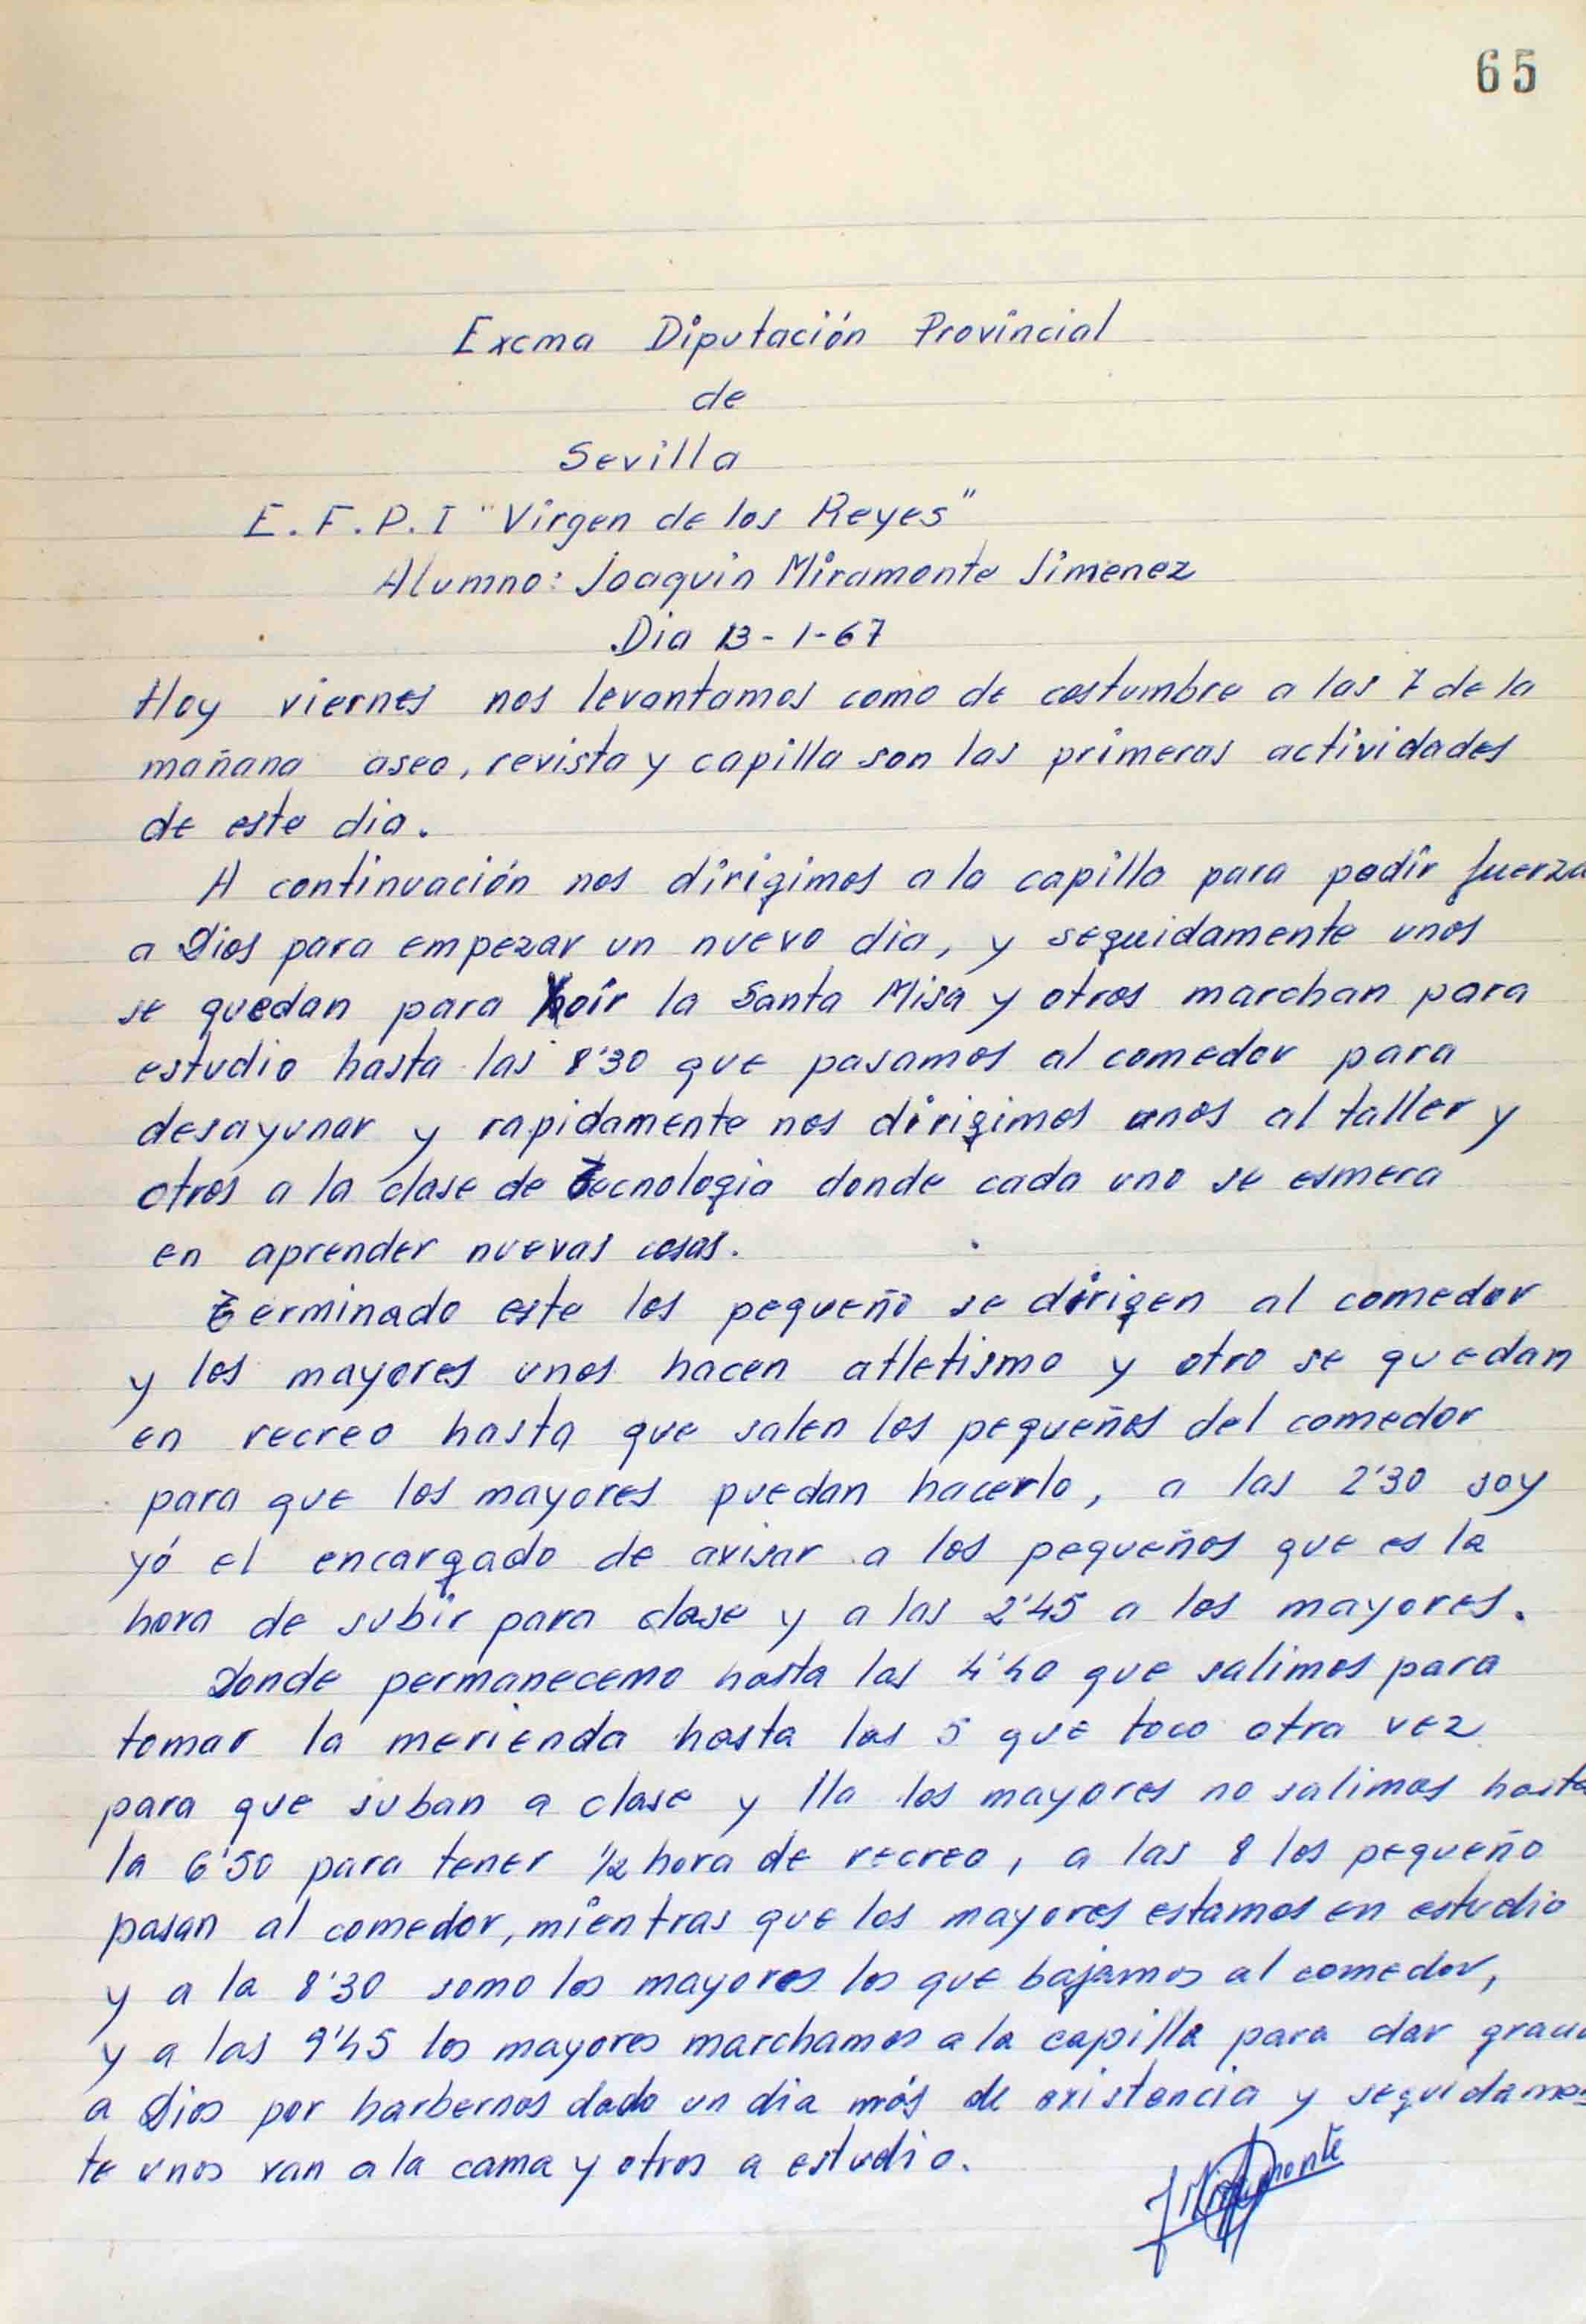 65
Excma Diputación Provincial
de
Sevilla
E.F.P.I "Virgen de los Reyes"
Alumno: Joaquin Miramonte Jimenez
Dia 13-1-67
Hoy viernes nos levantamos como de costumbre a las 7 de la
mañana aseo, revista y capilla son las primeras actividades
de este dia.
A continuación nos dirigimos a la capilla para pedir fuerza
a Dios para empezar un nuevo dia, y seguidamente unos
se quedan para oir la Santa Misa y otros marchan para
estudio hasta las 8'30 que pasamos al comedor para
desayunar y rapidamente nos dirigimos unos al taller y
otros a la clase de tecnologia donde cada uno se esmera
en aprender nuevas cosas.
Terminado este los pequeño se dirigen al comedor
y los mayores unos hacen atletismo y otro se quedan
en recreo hasta que salen los pequeños del comedor
para que los mayores puedan hacerlo, a las 2'30 soy
yó el encargado de avisar a los pequeños que es la
hora de subir para clase y a las 2'45 a los mayores.
Donde permanecemo hasta las 4'40 que salimos para
tomar la merienda hasta las 5 que toco otra vez
para que suban a clase y lla los mayores no salimos hasta
la 6'50 para tener 1/2 hora de recreo, a las 8 los pequeño
pasan al comedor, mientras que los mayores estamos en estudio
y a la 8'30 somo los mayores los que bajamos al comedor,
y a las 9'45 los mayores marchamos a la capilla para dar
a Dios por harbernos dado un dia más de existencia y seguidamen
te unos van a la cama y otros a estudio.
J Miramonte